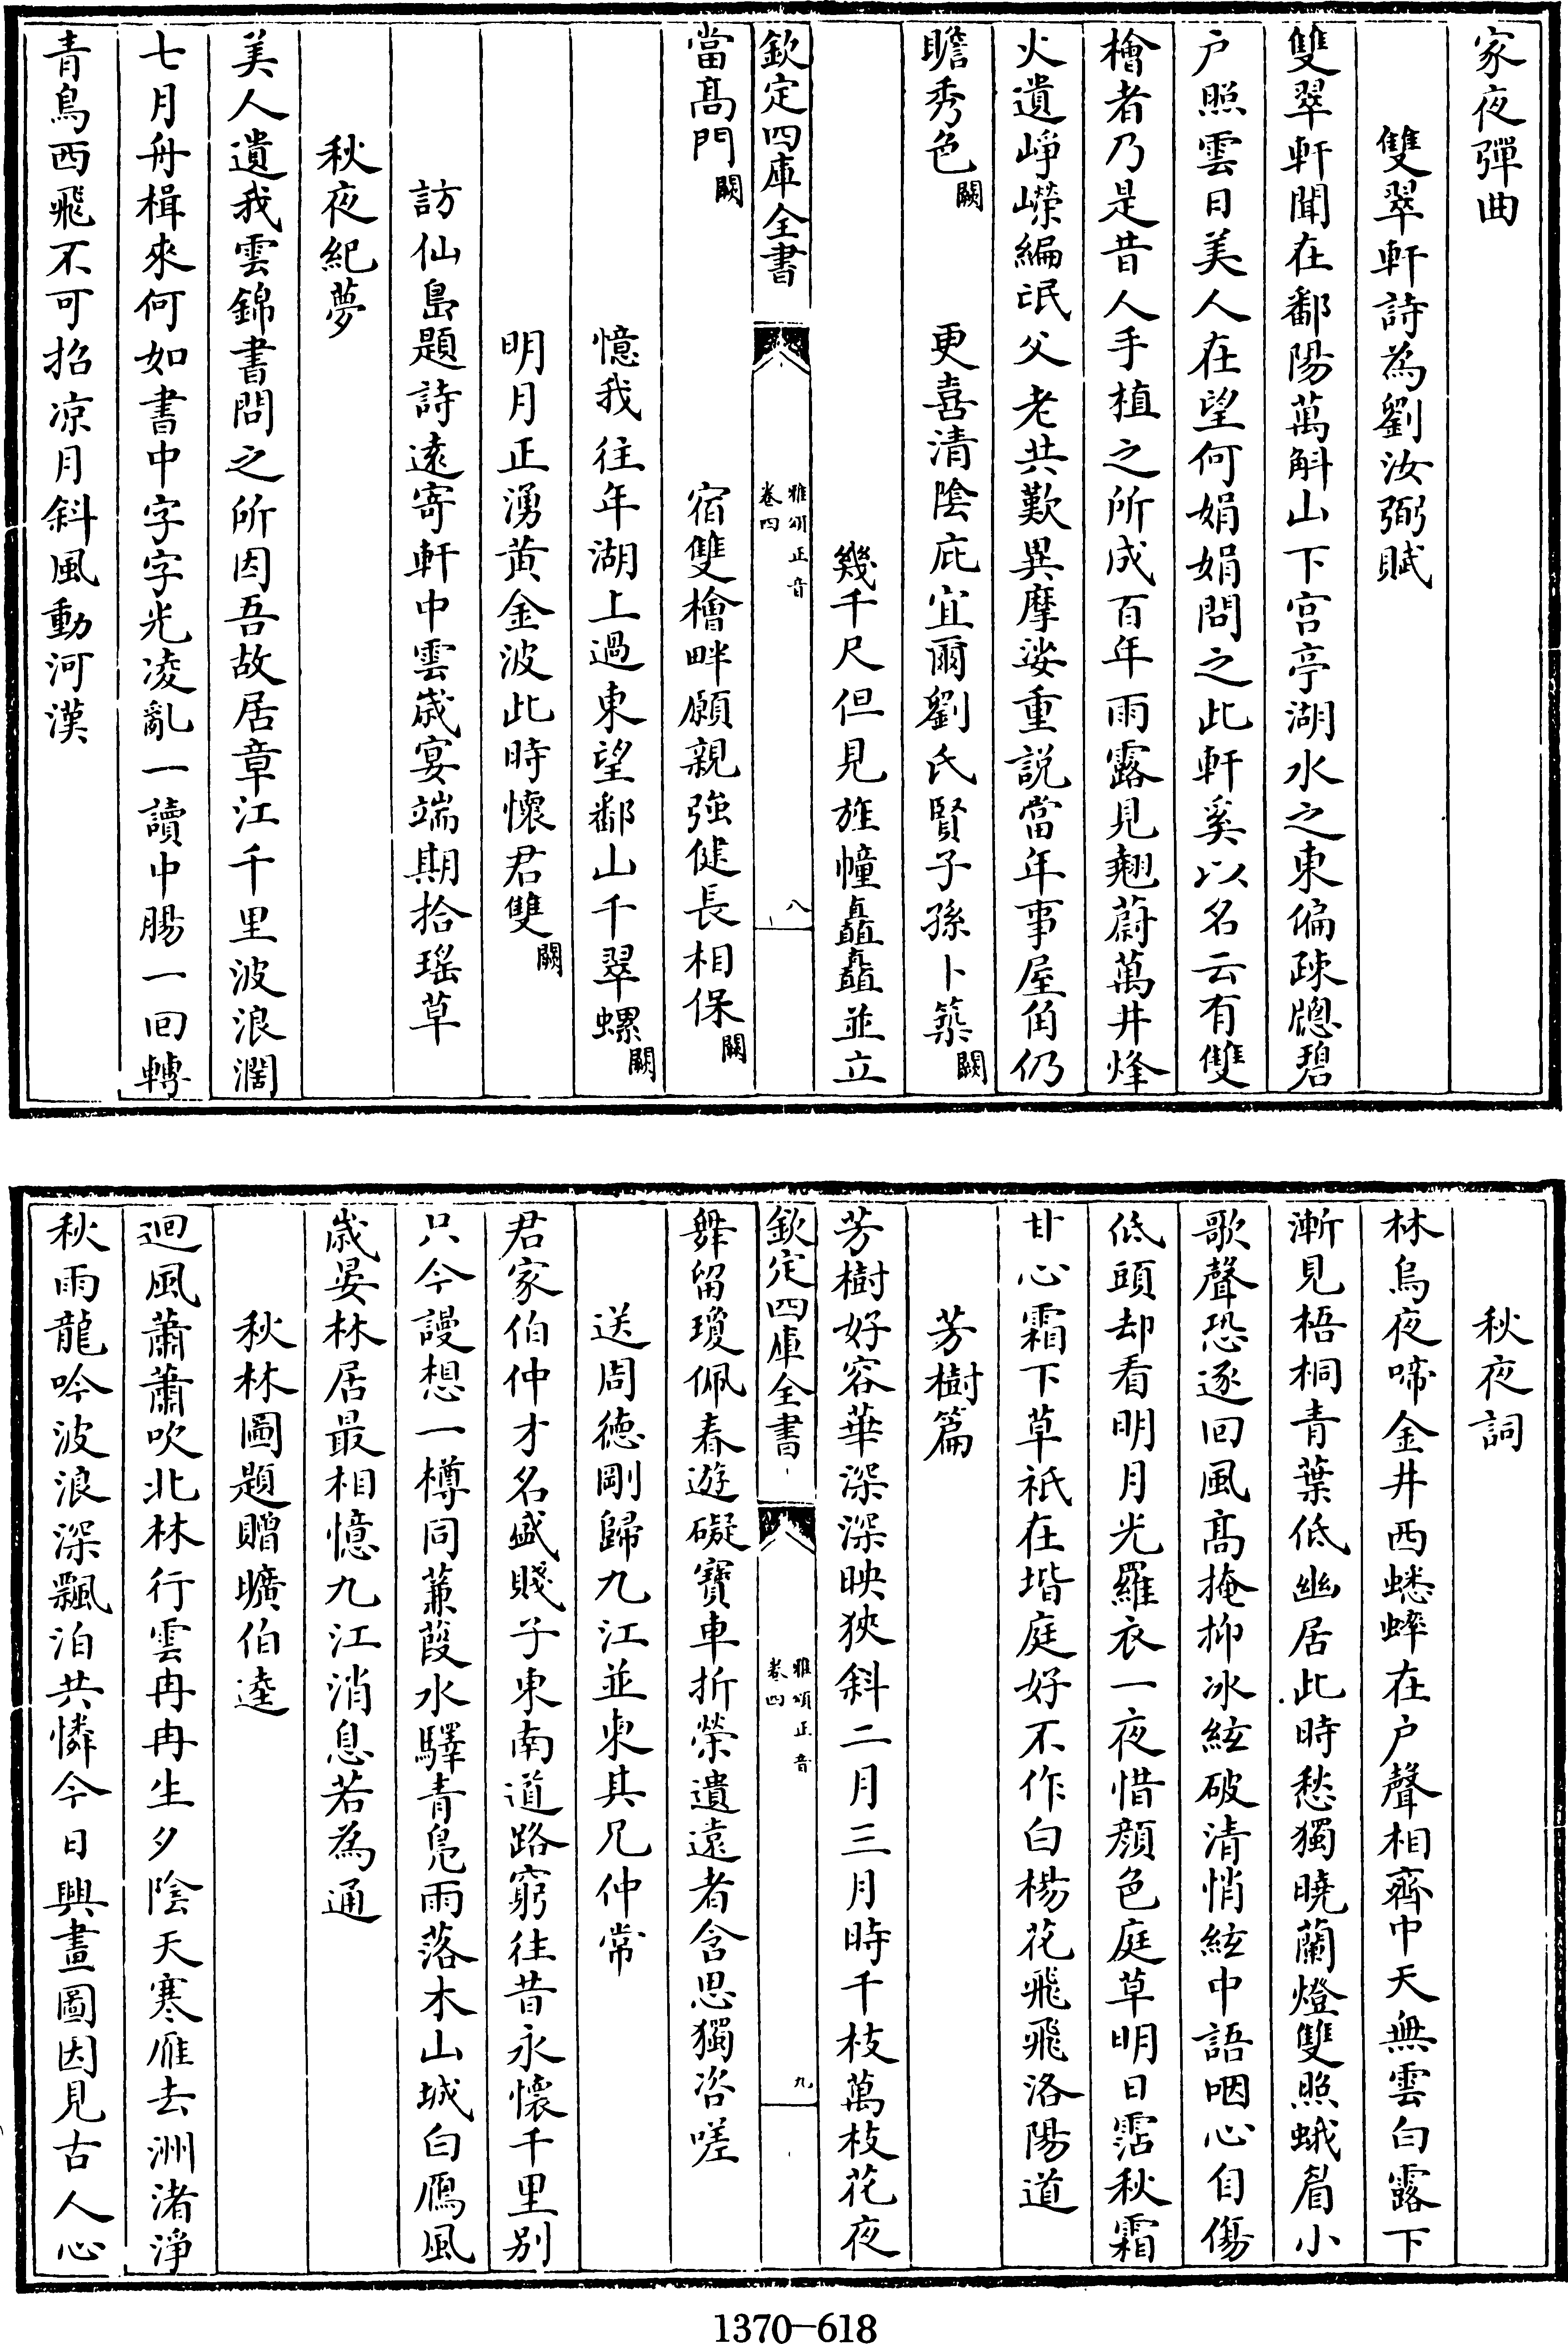 家夜彈曲
雙翠軒詩為劉汝弼賦
雙翠軒聞在鄱陽萬斛山下宫亭湖水之東偏疎牕碧
户照雲日美人在望何娟娟問之此軒奚以名云有雙
檜者乃是昔人手植之所成百年雨露見翹蔚萬井烽
火遺崢嶸編氓父老共歎異摩娑重説當年事屋角仍
瞻秀色闕更喜清陰庇宜爾劉氏賢子孫卜築闕
幾千尺但見旌幢矗矗並立
欽定四庫全書
雅頌正音
卷四
八
當髙門闕宿雙檜畔願親強健長相保闕
憶我往年湖上過東望鄱山千翠螺闕
明月正湧黄金波此時懷君雙闕
訪仙島題詩遠寄軒中雲歳宴端期拾瑶草
秋夜紀夢
美人遺我雲錦書問之所因吾故居章江千里波浪濶
七月舟楫來何如書中字字光凌亂一讀中腸一回轉
青鳥西飛不可招凉月斜風動河漢
秋夜詞
林烏夜啼金井西蟋蟀在户聲相齊中天無雲白露下
漸見梧桐青葉低幽居此時愁獨曉蘭燈雙照蛾眉小
歌聲恐逐回風髙掩抑冰絃破清悄絃中語咽心自傷
低頭却看明月光羅衣一夜惜顔色庭草明日霑秋霜
甘心霜下草祇在堦庭好不作白楊花飛飛洛陽道
芳樹篇
芳樹好容華深深映狹斜二月三月時千枝萬枝花夜
欽定四庫全書
雅頌正音
卷四
九
舞留瓊佩春遊礙寶車折榮遺遠者含思獨咨嗟
送周德剛歸九江並柬其兄仲常
君家伯仲才名盛賤子東南道路窮往昔永懷千里别
只今謾想一樽同蒹葭水驛青鳬雨落木山城白鴈風
歳晏林居最相憶九江消息若為通
秋林圖題贈曠伯逵
迴風蕭蕭吹北林行雲冉冉生夕陰天寒雁去洲渚淨
秋雨龍吟波浪深飄泊共憐今日興畫圖因見古人心
1370—618